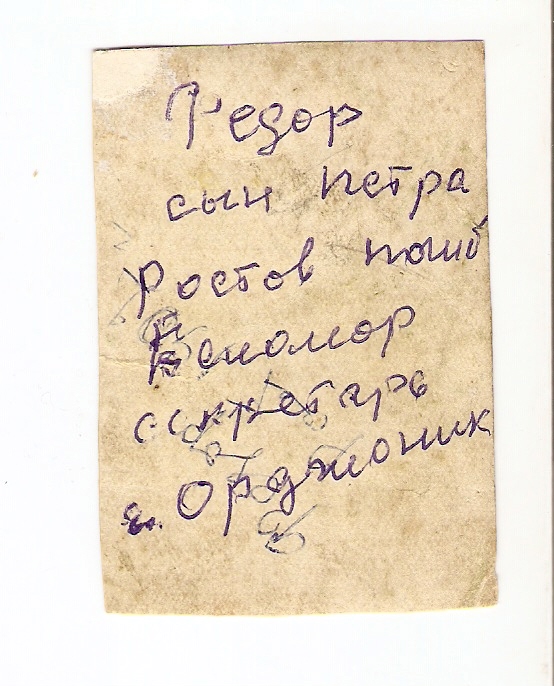 Федор
сын петра
Ростов погиб
секретарь
Орджоник